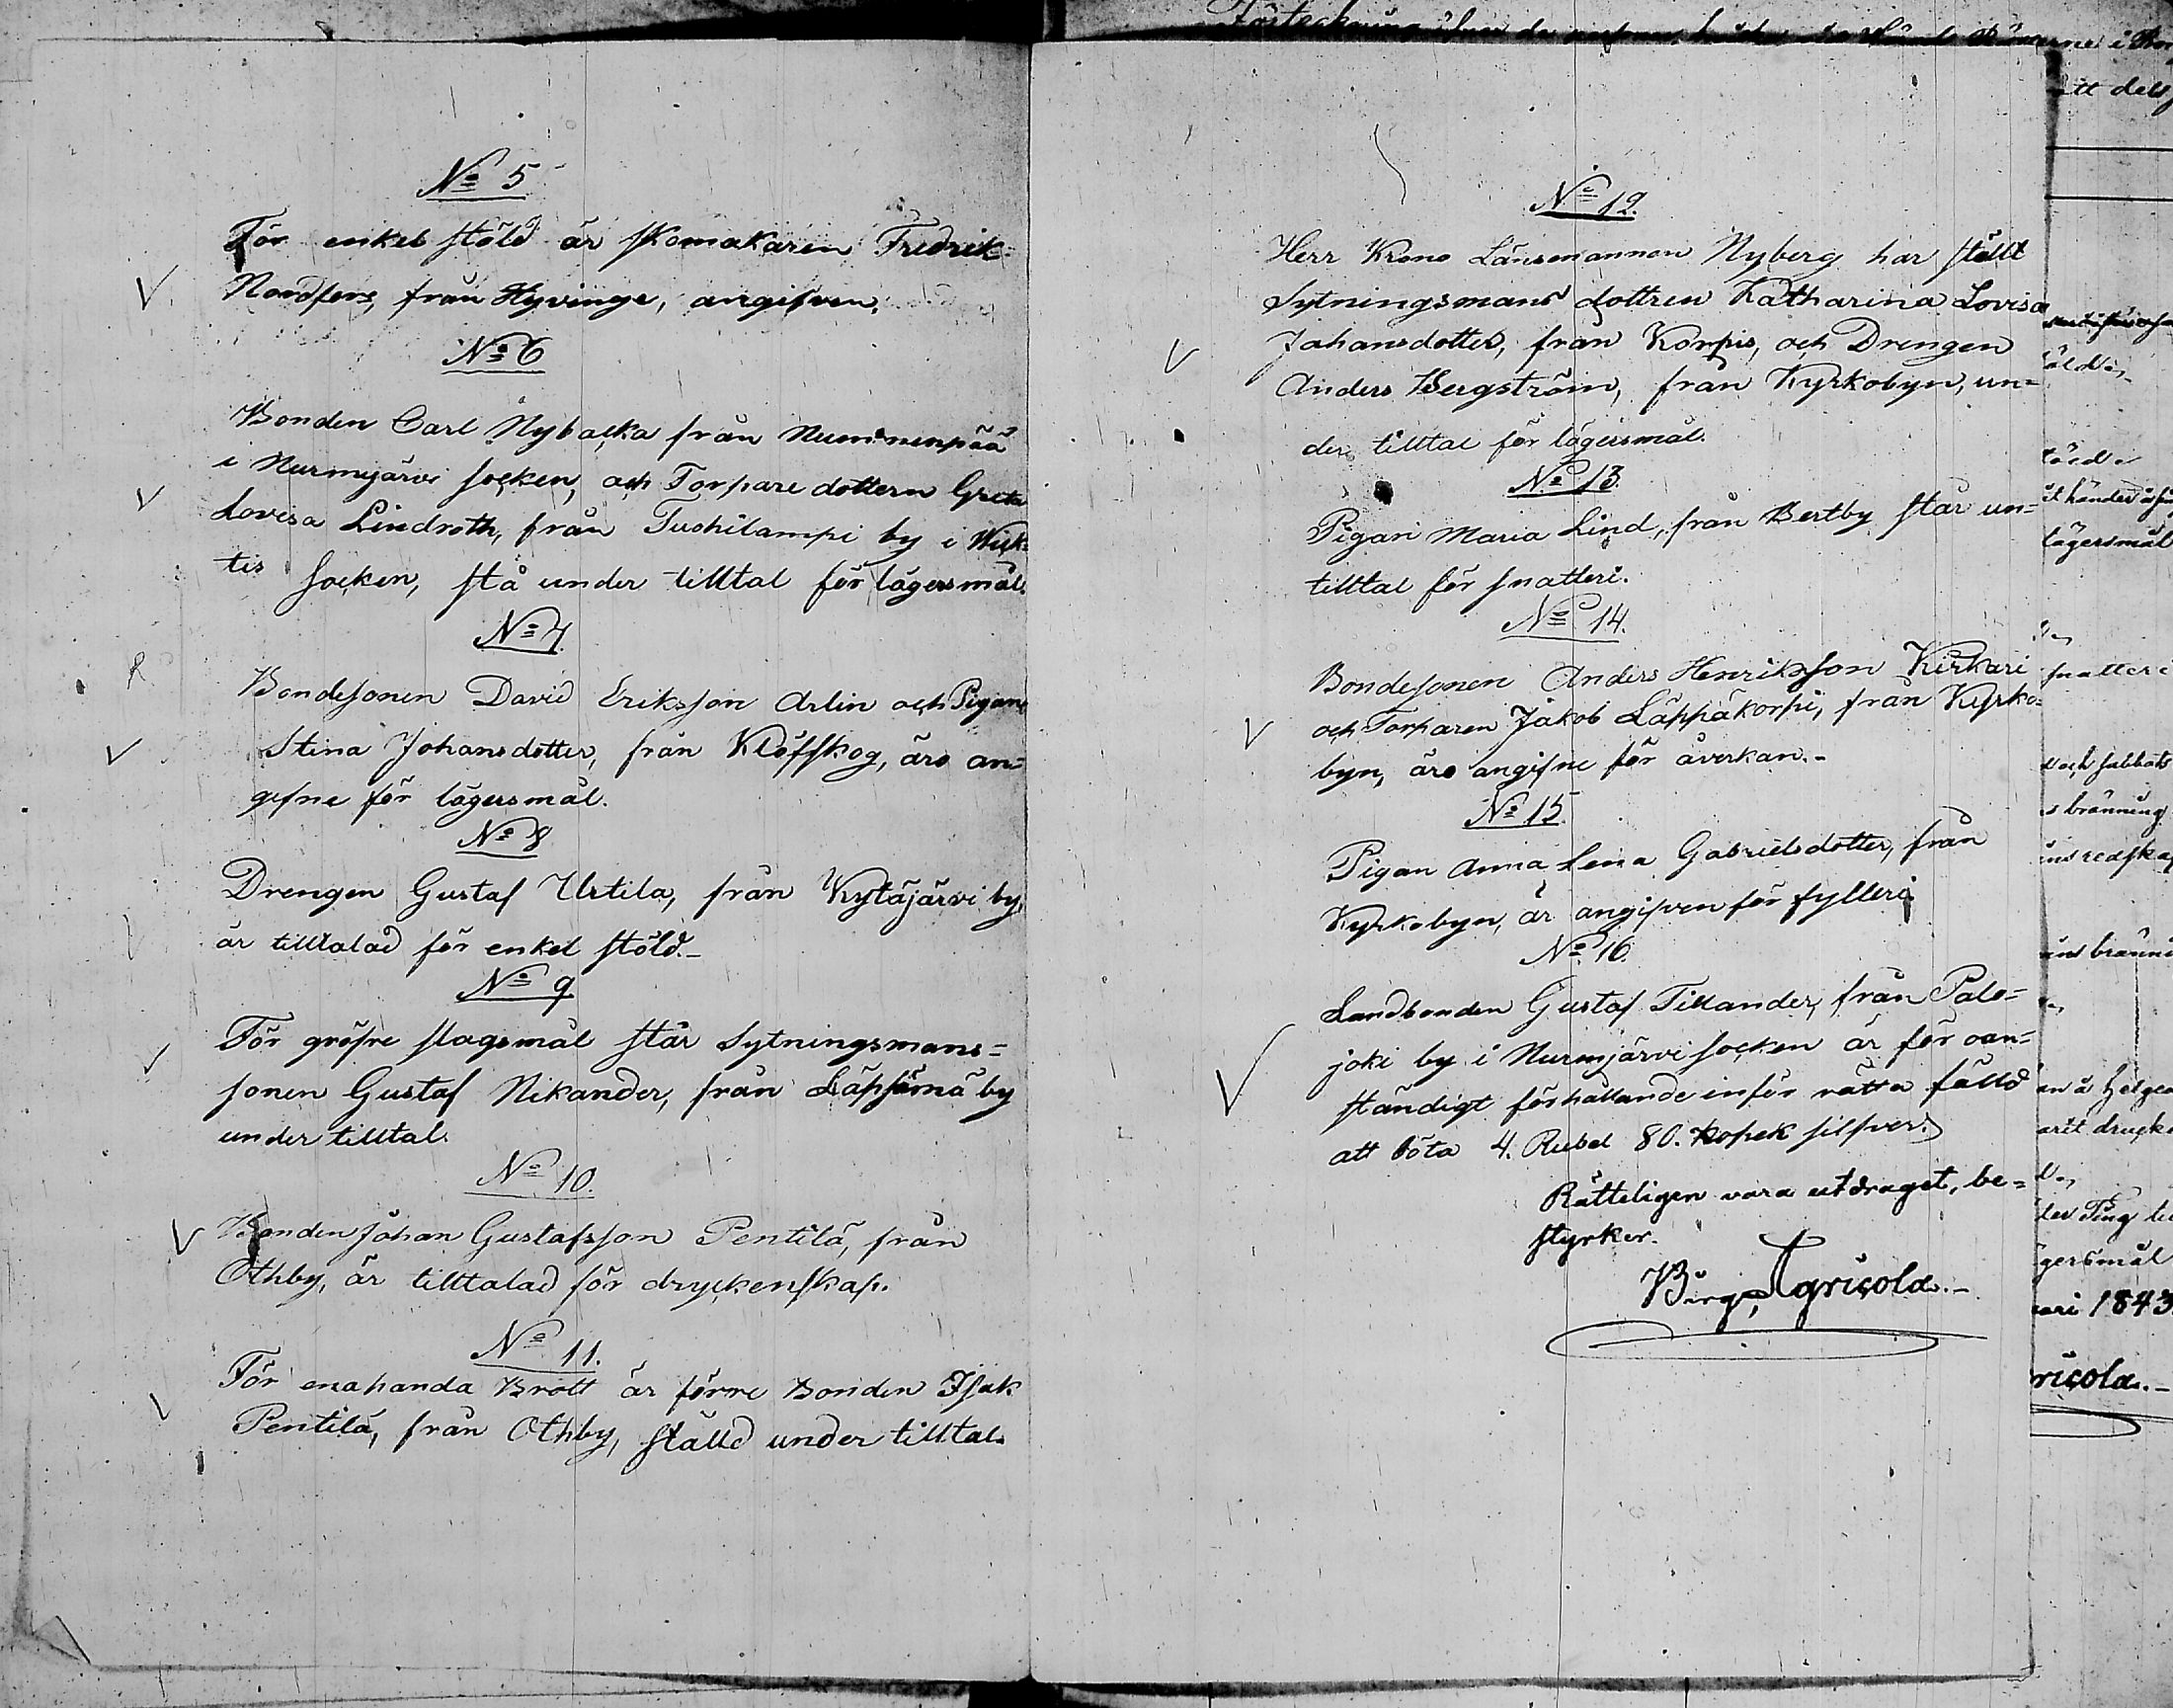 No 5
För enkel stöld är skomakaren Fredrik
Nordfors, från Hyvinge, angifven.
No 6
Bonden Carl Nybacka från Numminenpää
i Nurmijärvi socken, och Torpare dottern Greta
Lovisa Lindroth, från Tuohilampi by i Wick-
tis socken, stå under tilltal för lägersmål.
No 7.
Bondesonen David Eriksson Arlin och Pigan
Stina Johansdotter, från Klöfskog, äro an=
gifne för lägersmål.
No 8
Drengen Gustaf Urtila, från Kytäjärvi by,
är tilltalad för enkel stöld.-
No 9
För gröfre slagsmål står Sytningsmans=
sonen Gustaf Nikander, från Läpsämä by
under tilltal.
No 10.
Bonden Johan Gustafsson Pentilä, från
Othby, är tilltalad för dryckenskap.
No 11.
För enahanda Brott är förre Bonden Isak
Pentilä, från Othby, ställd under tilltal.
No 12.
Herr Krono Länsemannen Nyberg har ställt
Sytningsmans dottren Katharina Lovisa
Johansdotter, från Korpis, och Drengen
Anders Bergström, från Kyrkobyn, un=
der tilltal för lägersmål.
No 13.
Pigan Maria Lind, från Bertby står un=
tilltal för snatteri.
No 14.
Bondesonen Anders Henriksson Kirkari
och Torparen Jakob Läppäkorpi, från Kyrko=
byn, äro angifne för åverkan.-
No 15.
Pigan Anna Lena Gabrielsdotter, från
Kyrkobyn, är angifven för fylleri.
No 16.
Landbonden Gustaf Tillander, från Palo=
joki by i Nurmijärvi socken är för oan=
ständigt förhållande inför rätta fälld
att böta 4. Rubel 80. kopek silfver.
Rätteligen vara utdraget, be=
styrker.
Birg. Agricola.-
Förteckning öfver de
lägersmål
snatteri
och sabbats
bränning
redskap
ari 1843.
ricola.-